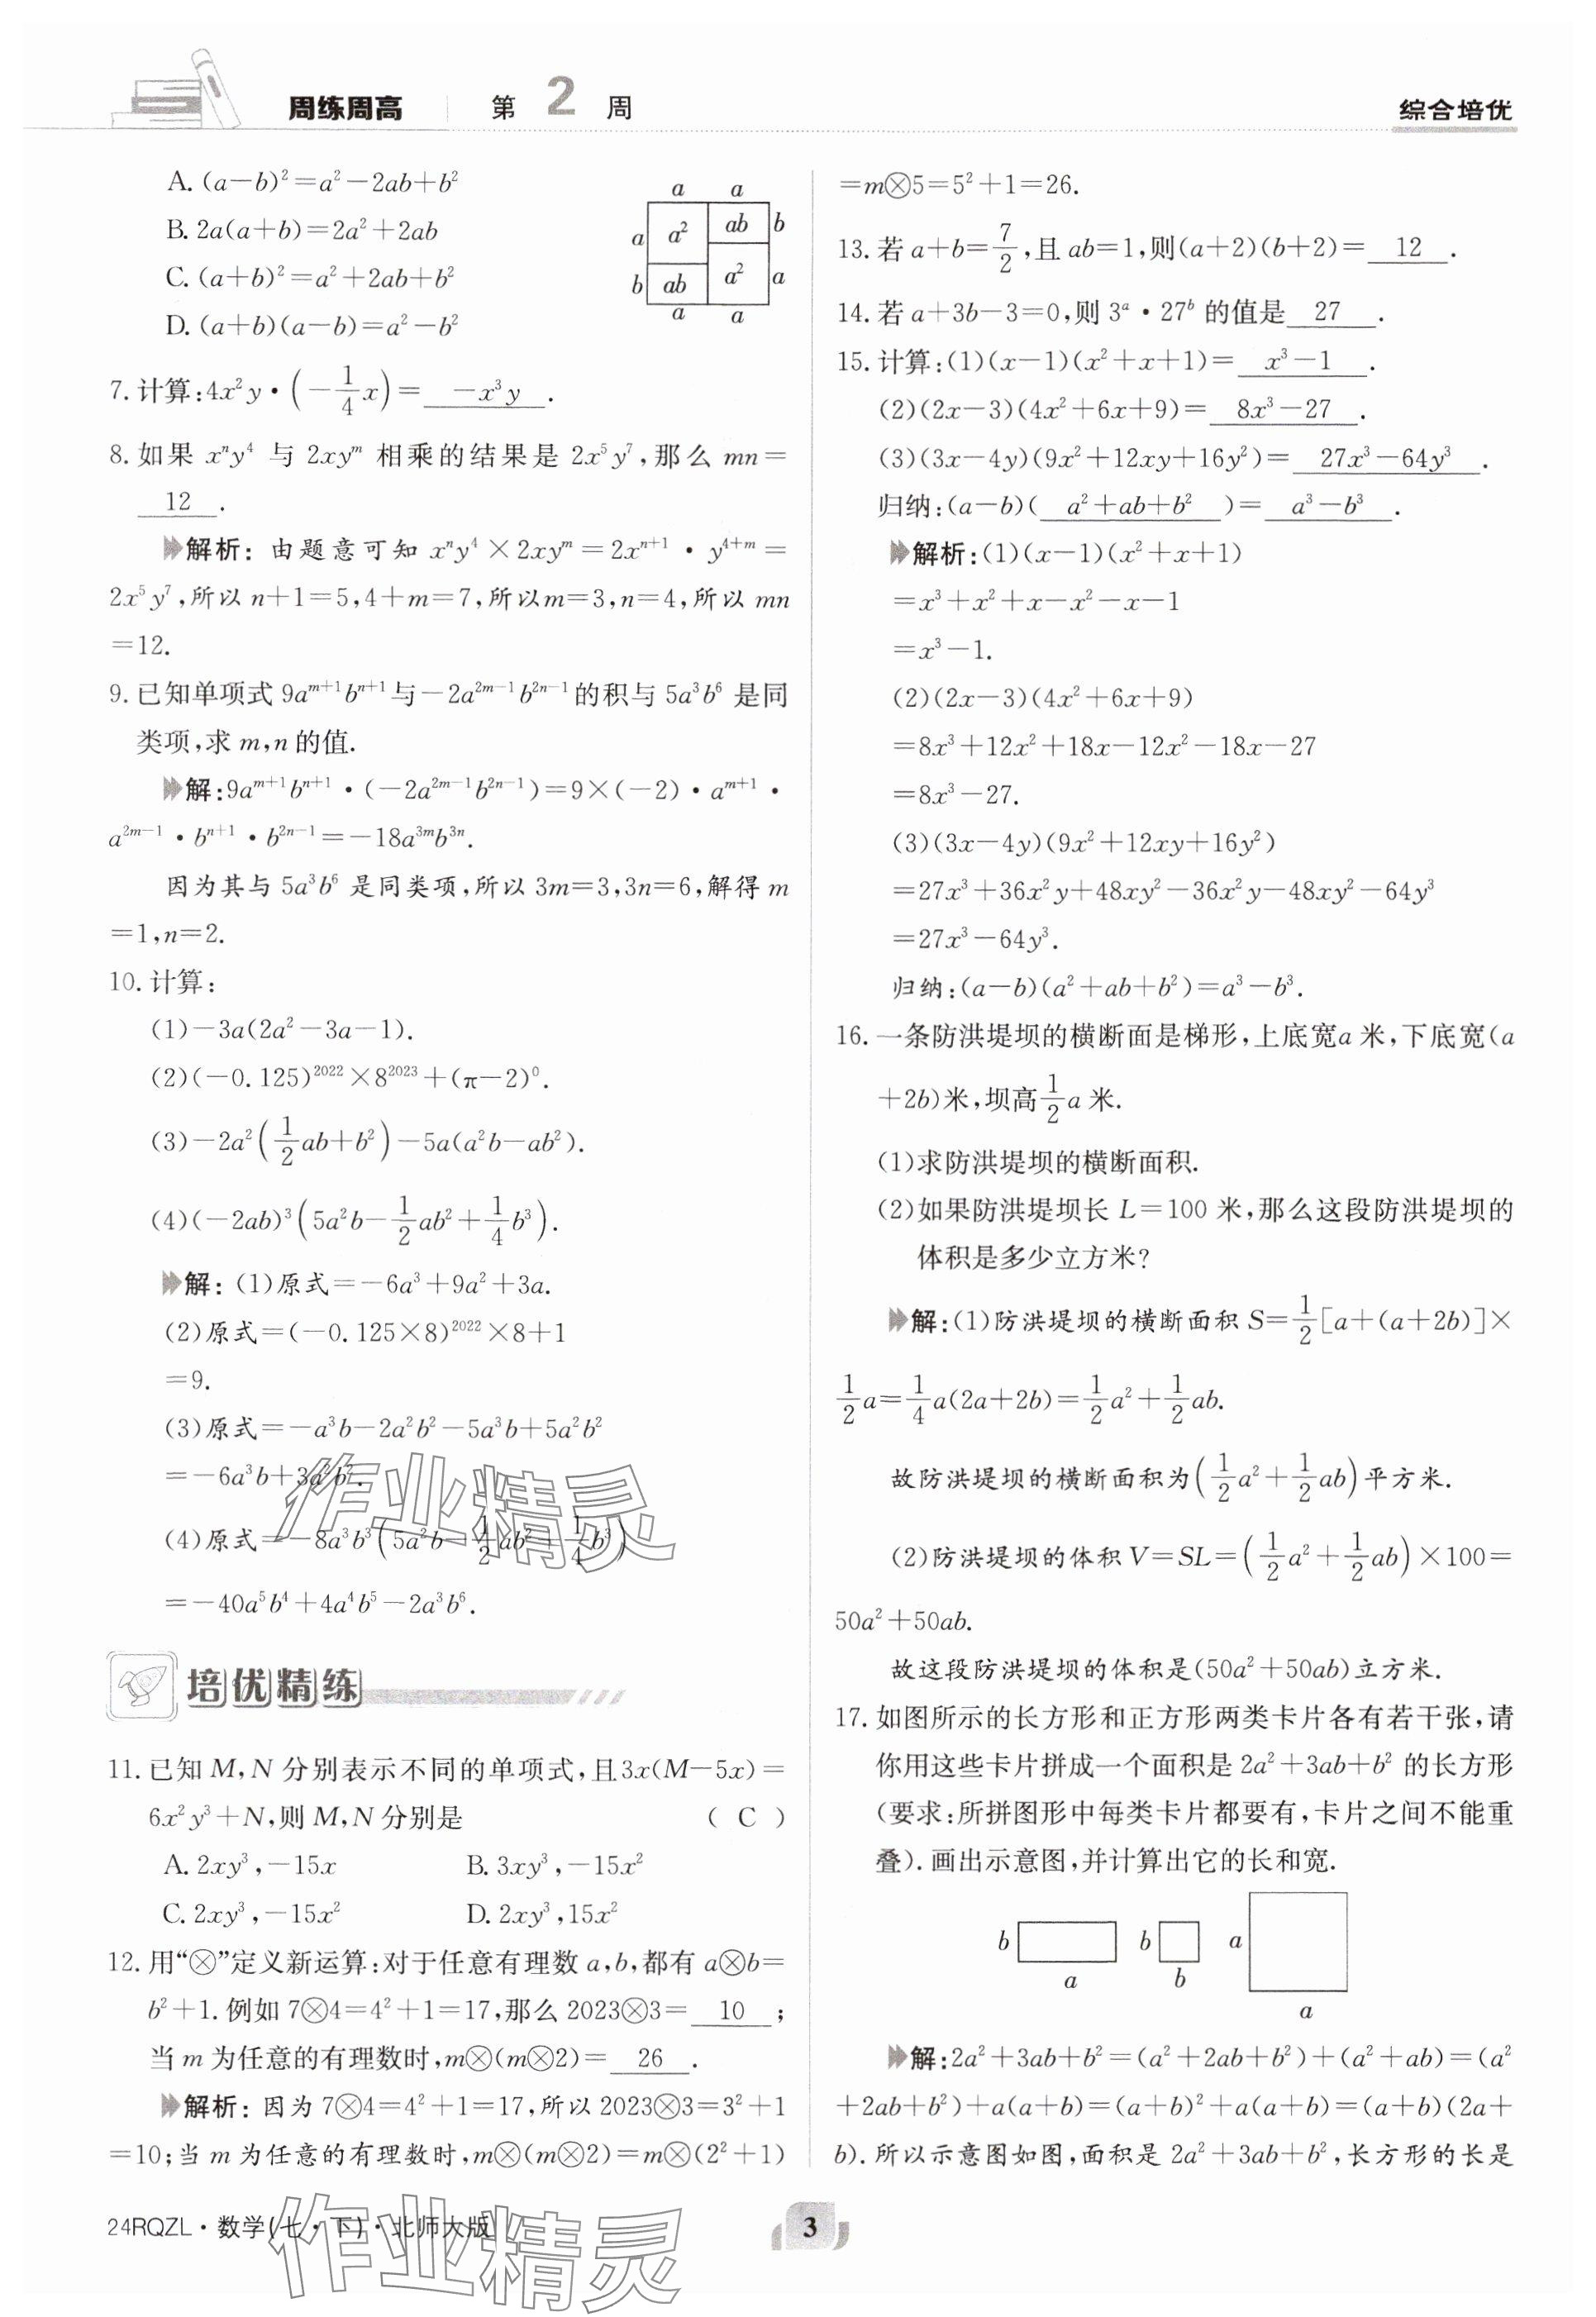 周练周高 第 2 周
综合培优
A. (a－b)²＝a²－2ab＋b²
B. 2a(a＋b)＝2a²＋2ab
C. (a＋b)²＝a²＋2ab＋b²
D. (a＋b)(a－b)＝a²－b²
a a
a a² ab b
b ab a² a
a a
7. 计算:4x²y·(－1/4x)＝ －x³y .
8. 如果 xⁿy⁴ 与 2xyᵐ 相乘的结果是 2x⁵y⁷,那么 mn＝
12 .
解析: 由题意可知 xⁿy⁴×2xyᵐ＝2xⁿ⁺¹·y⁴⁺ᵐ＝
2x⁵y⁷,所以 n＋1＝5,4＋m＝7,所以m＝3,n＝4,所以 mn
＝12.
9. 已知单项式 9aᵐ⁺¹bⁿ⁺¹与－2a²ᵐ⁻¹b²ⁿ⁻¹的积与 5a³b⁶ 是同
类项,求 m,n 的值.
解:9aᵐ⁺¹bⁿ⁺¹·(－2a²ᵐ⁻¹b²ⁿ⁻¹)＝9×(－2)·aᵐ⁺¹·
a²ᵐ⁻¹·bⁿ⁺¹·b²ⁿ⁻¹＝－18a³ᵐb³ⁿ.
因为其与 5a³b⁶ 是同类项,所以 3m＝3,3n＝6,解得 m
＝1,n＝2.
10. 计算:
(1)－3a(2a²－3a－1).
(2)(－0.125)²⁰²²×8²⁰²³＋(π－2)⁰.
(3)－2a²(1/2ab＋b²)－5a(a²b－ab²).
(4)(－2ab)³(5a²b－1/2ab²＋1/4b³).
解: (1)原式＝－6a³＋9a²＋3a.
(2)原式＝(－0.125×8)²⁰²²×8＋1
＝9.
(3)原式＝－a³b－2a²b²－5a³b＋5a²b²
＝－6a³b＋3a²b².
(4)原式＝－8a³b³(5a²b－1/2ab²＋1/4b³)
＝－40a⁵b⁴＋4a⁴b⁵－2a³b⁶.
培优精练
11. 已知 M,N 分别表示不同的单项式,且3x(M－5x)＝
6x²y³＋N,则 M,N 分别是 ( C )
A. 2xy³,－15x B. 3xy³,－15x²
C. 2xy³,－15x² D. 2xy³,15x²
12. 用“⊗”定义新运算:对于任意有理数 a,b,都有 a⊗b＝
b²＋1. 例如 7⊗4＝4²＋1＝17,那么 2023⊗3＝ 10 ;
当 m 为任意的有理数时,m⊗(m⊗2)＝ 26 .
解析: 因为 7⊗4＝4²＋1＝17,所以 2023⊗3＝3²＋1
＝10;当 m 为任意的有理数时,m⊗(m⊗2)＝m⊗(2²＋1)
＝m⊗5＝5²＋1＝26.
13. 若 a＋b＝7/2,且 ab＝1,则(a＋2)(b＋2)＝ 12 .
14. 若 a＋3b－3＝0,则 3ᵃ·27ᵇ 的值是 27 .
15. 计算:(1)(x－1)(x²＋x＋1)＝ x³－1 .
(2)(2x－3)(4x²＋6x＋9)＝ 8x³－27 .
(3)(3x－4y)(9x²＋12xy＋16y²)＝ 27x³－64y³ .
归纳:(a－b)( a²＋ab＋b² )＝ a³－b³ .
解析:(1)(x－1)(x²＋x＋1)
＝x³＋x²＋x－x²－x－1
＝x³－1.
(2)(2x－3)(4x²＋6x＋9)
＝8x³＋12x²＋18x－12x²－18x－27
＝8x³－27.
(3)(3x－4y)(9x²＋12xy＋16y²)
＝27x³＋36x²y＋48xy²－36x²y－48xy²－64y³
＝27x³－64y³.
归纳:(a－b)(a²＋ab＋b²)＝a³－b³.
16. 一条防洪堤坝的横断面是梯形,上底宽a 米,下底宽(a
＋2b)米,坝高1/2a 米.
(1)求防洪堤坝的横断面积.
(2)如果防洪堤坝长 L＝100 米,那么这段防洪堤坝的
体积是多少立方米?
解:(1)防洪堤坝的横断面积 S＝1/2[a＋(a＋2b)]×
1/2a＝1/4a(2a＋2b)＝1/2a²＋1/2ab.
故防洪堤坝的横断面积为(1/2a²＋1/2ab)平方米.
(2)防洪堤坝的体积 V＝SL＝(1/2a²＋1/2ab)×100＝
50a²＋50ab.
故这段防洪堤坝的体积是(50a²＋50ab)立方米.
17. 如图所示的长方形和正方形两类卡片各有若干张,请
你用这些卡片拼成一个面积是 2a²＋3ab＋b² 的长方形
(要求:所拼图形中每类卡片都要有,卡片之间不能重
叠). 画出示意图,并计算出它的长和宽.
b b a
a b a
解:2a²＋3ab＋b²＝(a²＋2ab＋b²)＋(a²＋ab)＝(a²
＋2ab＋b²)＋a(a＋b)＝(a＋b)²＋a(a＋b)＝(a＋b)(2a＋
b). 所以示意图如图,面积是 2a²＋3ab＋b²,长方形的长是
24RQZL·数学(七·下)·北师大版
3
作业精灵
作业精灵